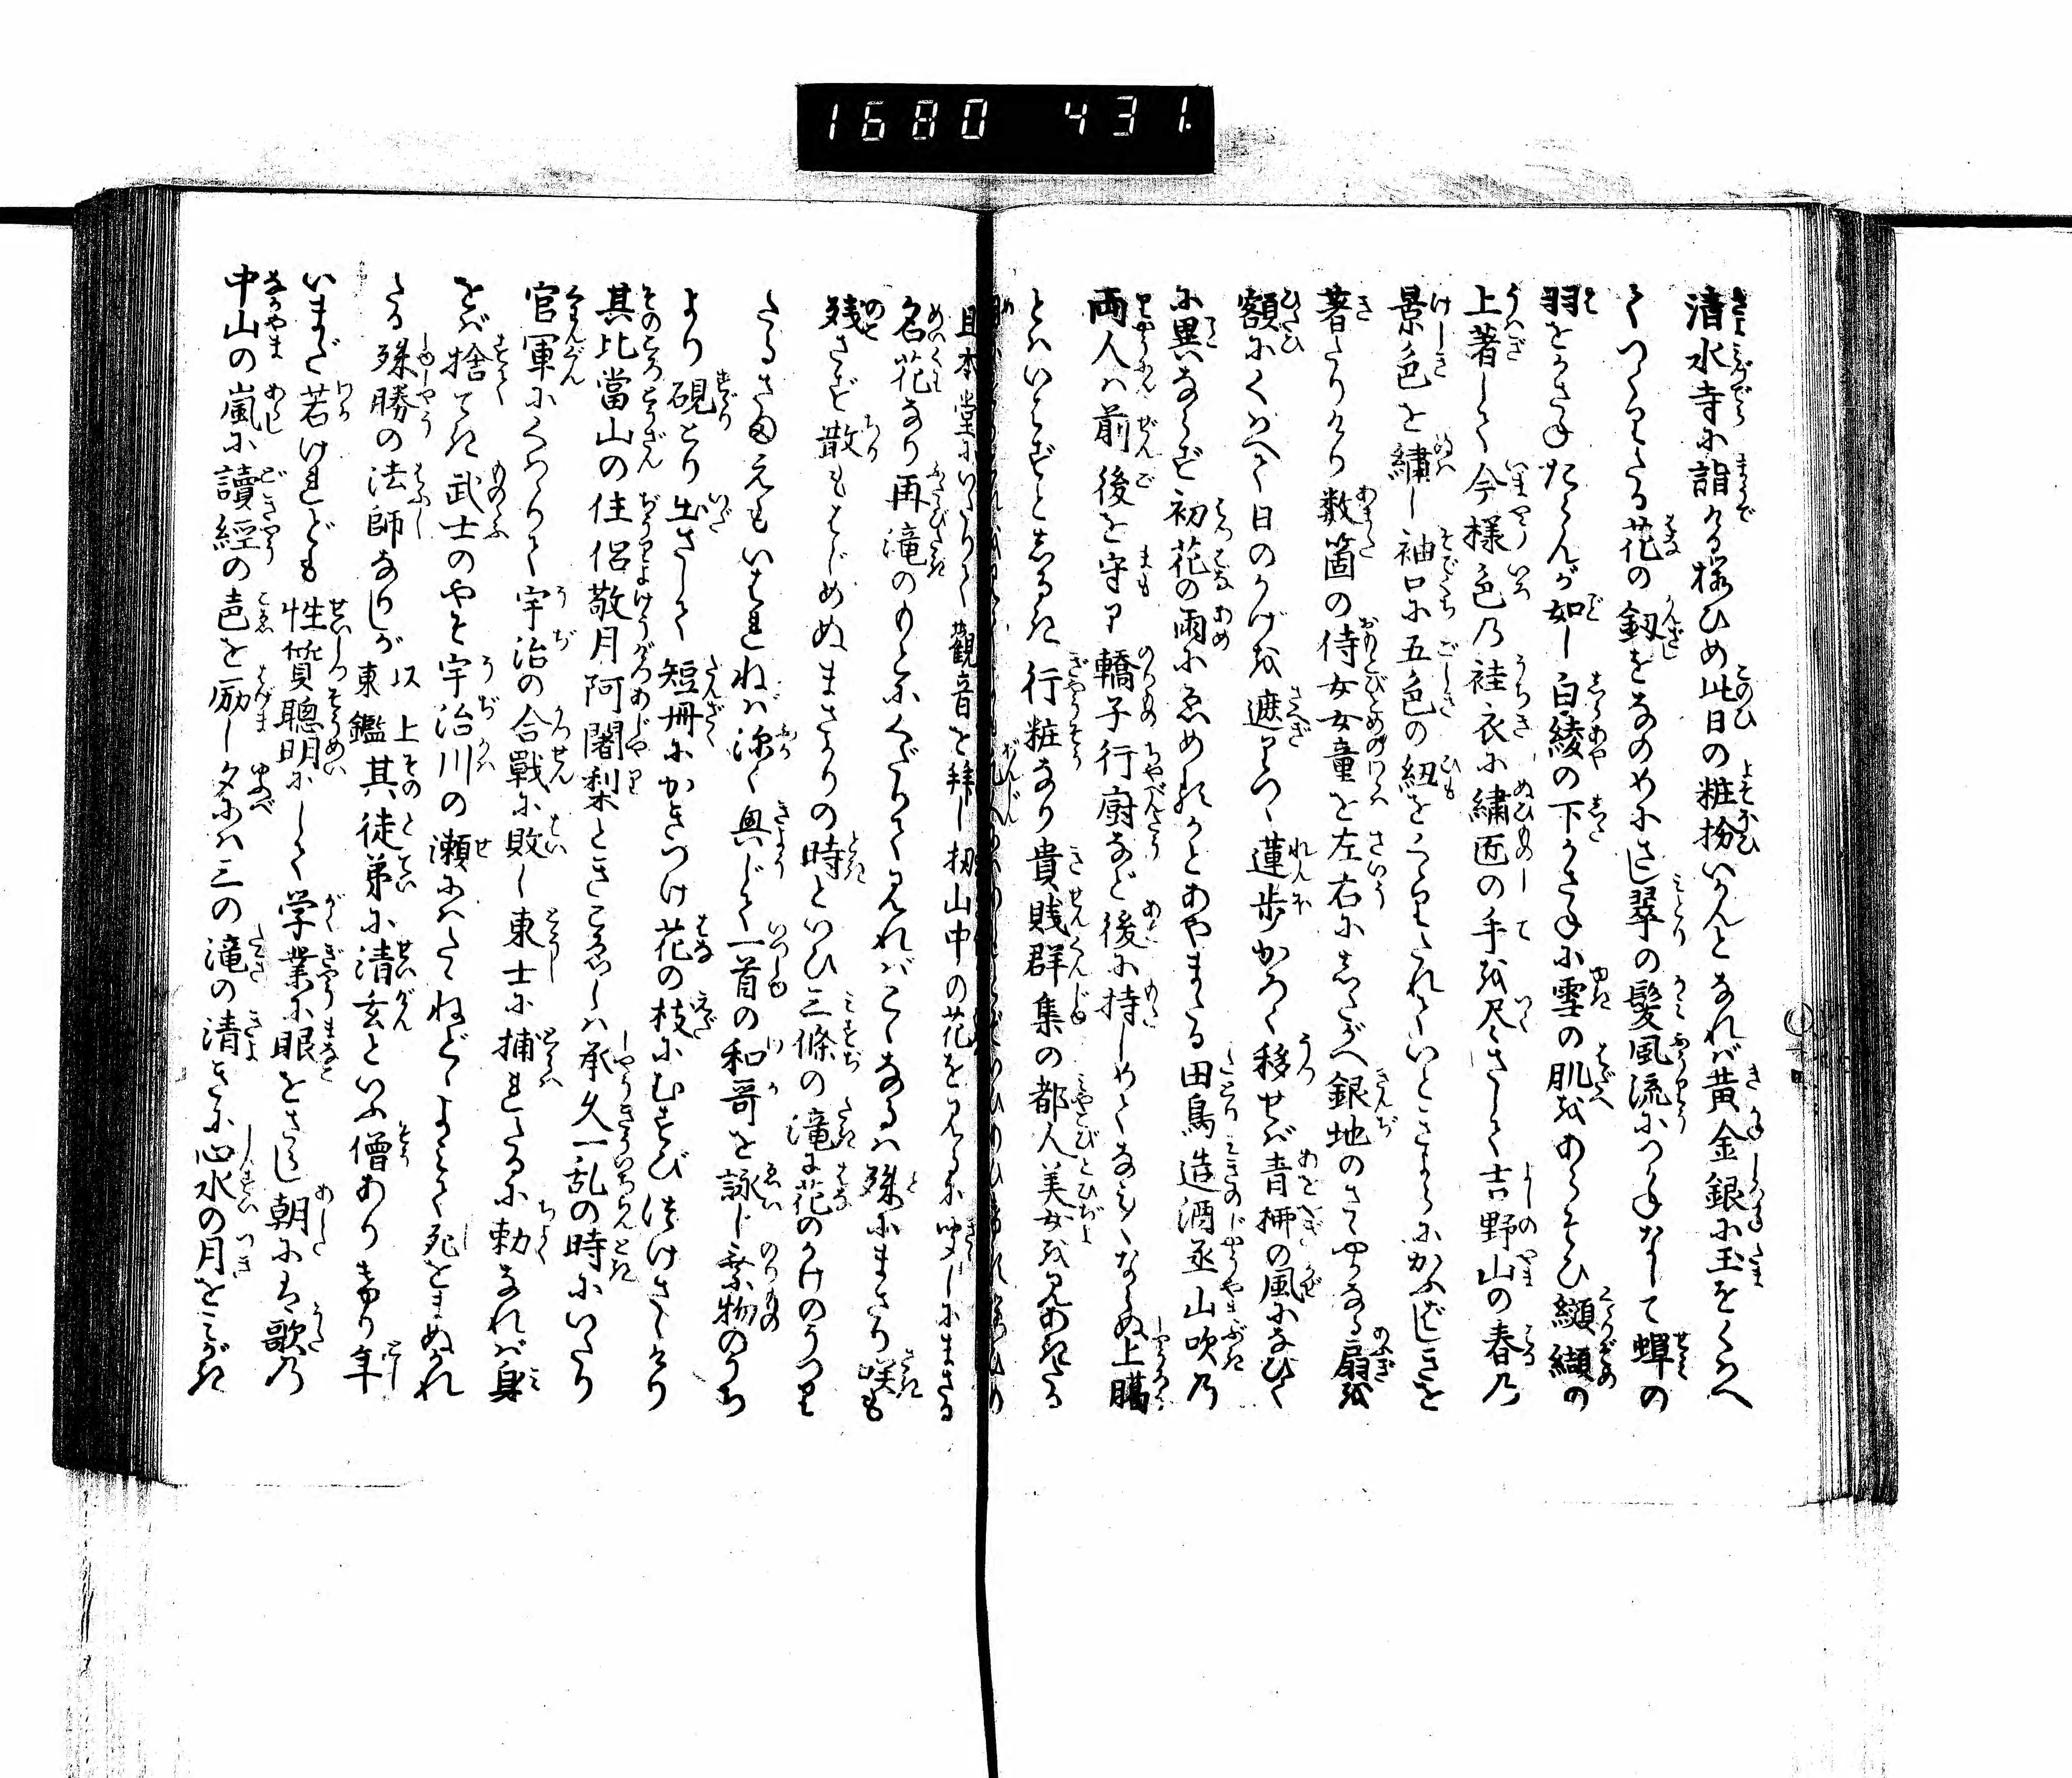 1680 431.
清水寺に詣ける桜ひめ此日の粧扮いかんとなれば黄金銀に玉をくはへ
てつくりたる花の釵をなのめにさし翠の髪風流につかねなして蝉の
羽をかさねたらんが如し白綾の下がさねに雪の肌をあらそひ纐纈の
上著して今様色乃袿衣に繍匠の手を尽さして吉野山の春乃
景色を繍し袖口に五色の紐をくくりたれていとさよらかにかふばしきを
著たりけり数箇の侍女女童を左右にしたがへ銀地のささやかなる扇を
額にくはへて日のかげを遮りつつ蓮歩かろく移せば青柳の風になびく
に異ならず初花の雨にゑめるかとあやまたる田鳥造酒丞山吹乃
両人は前後を守り轎子行厨など後に持しめてなみなみならぬ上臈
とはいはずとしるき行粧なり貴賎群集の都人美女を見あきたる
且本堂にいたりて観音を拝し扨山中の花を見るに聞しにまさる
名花なり再滝のもとにくだりて見ればここなるは殊にまさり咲も
残さず散もはじめぬまさかりの時といひ三條の滝に花のかけのうつり
たるさまえもいはれねば深く興じて一首の和哥を詠じ乗物のうち
より硯とり出さして短冊にかきつけ花の枝にむすび付けさしけり
其比當山の住侶敬月阿闍梨ときこえしは承久一乱の時にいたり
官軍にくははりて宇治の合戰に敗し東士に捕れたるに勅なれば身
をば捨てき武士のやそ宇治川の瀬にはたたねどとよみて死をまぬかれ
たる殊勝の法師なりしが以上東鑑其徒弟に清玄といふ僧ありけり年
いまだ若けれども性質聰明にして学業に眼をさらし朝には歌乃
中山の嵐に讀經の声を励し夕には三の滝の清きに心水の月をみがき